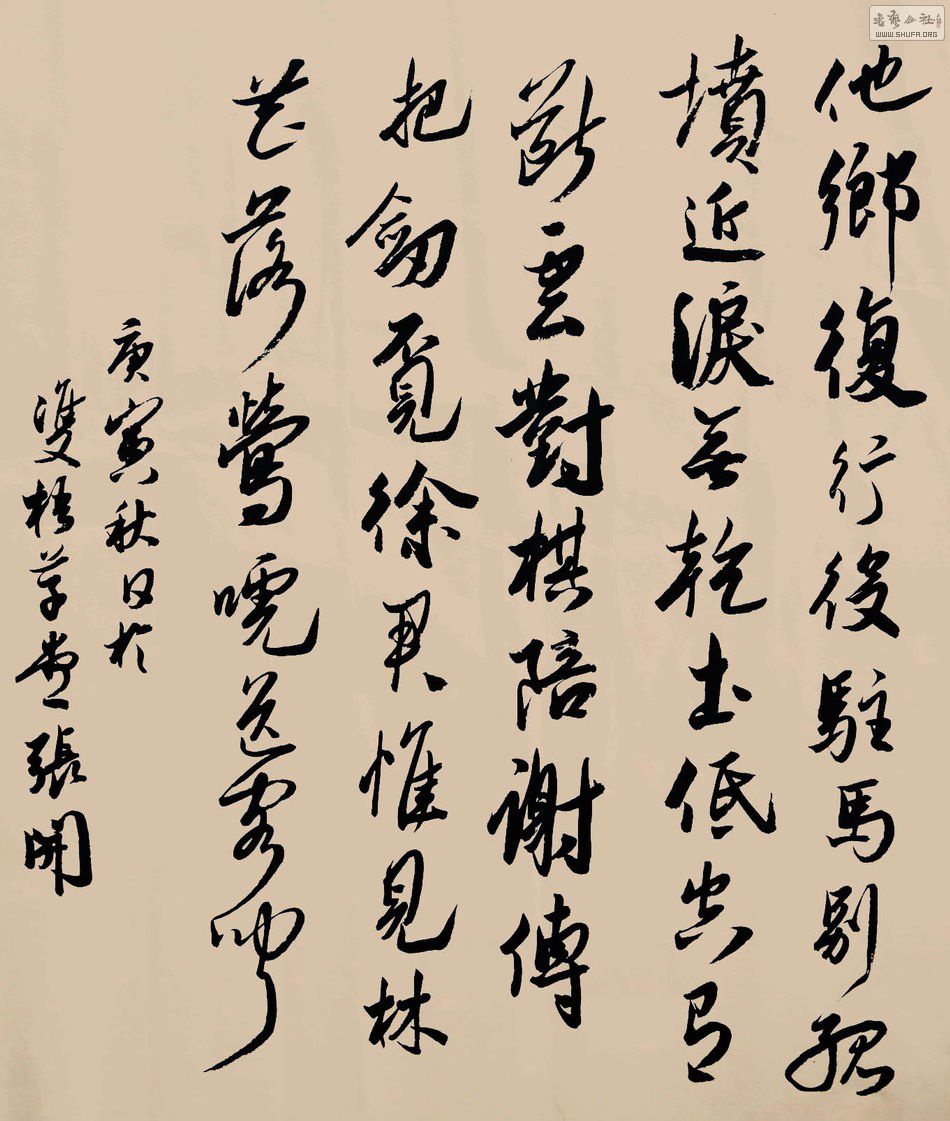 書藝公社
WWW.SHUFA.ORG
他鄉復行役駐馬別孤
墳近淚無乾土低空有
斷雲對棋陪謝傅
把劒覓徐君惟見林
花落鶯嗁送客聞
庚寅秋日於
雙梧草堂張開